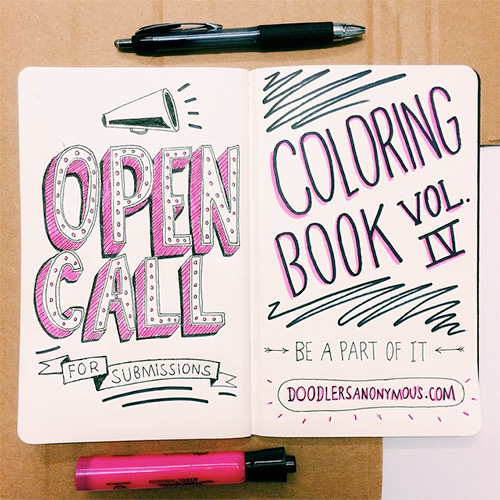 OPEN
CALL
FOR SUBMISSIONS
COLORING
BOOK VOL.
IV
BE A PART OF IT
DOODLERSANONYMOUS.COM